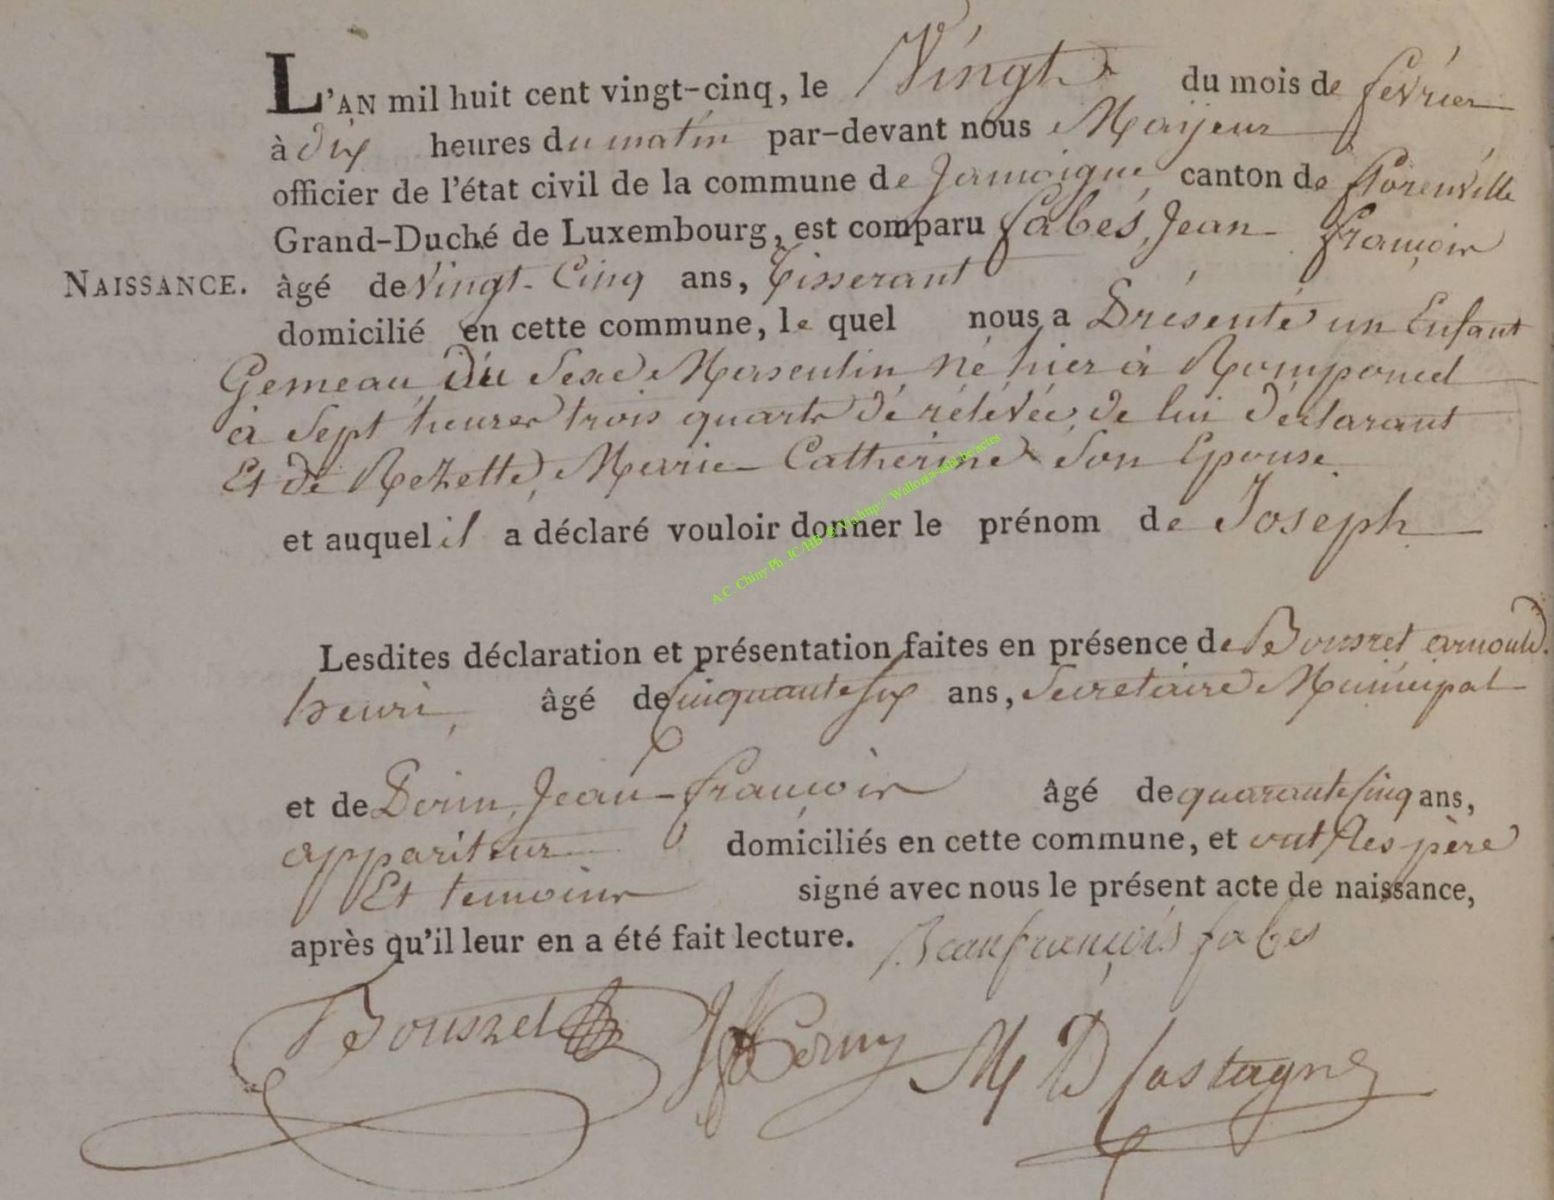 L'AN mil huit cent vingt-cinq, le Vingt du mois de fevrier
à dix heures du matin par-devant nous Mayeur
officier de l'état civil de la commune de Jamoigne canton de florenville
Grand-Duché de Luxembourg, est comparu fabes, Jean francois
NAISSANCE. âgé de Vingt-Cinq ans, Tisserant
domicilié en cette commune, le quel nous a Présenté un Enfant
Gemeau Du Sexe Masculin né hier à Romponcel
à Sept heures trois quarts de relevée, de lui déclarant
Et de Rezette, Marie Catherine Son Epouse
et auquel il a déclaré vouloir donner le prénom de Joseph
A.C. Chiny Ph. JC/HB
Lesdites déclaration et présentation faites en présence de Bouszet arnould
henri, âgé de Cinquante Six ans, Secretaire Municipal
et de Jean-françois âgé de quarante Cinq ans,
appariteur domiciliés en cette commune, et ont les père
Et temoins signé avec nous le présent acte de naissance,
après qu'il leur en a été fait lecture. Jean françois fabes
Bouszet